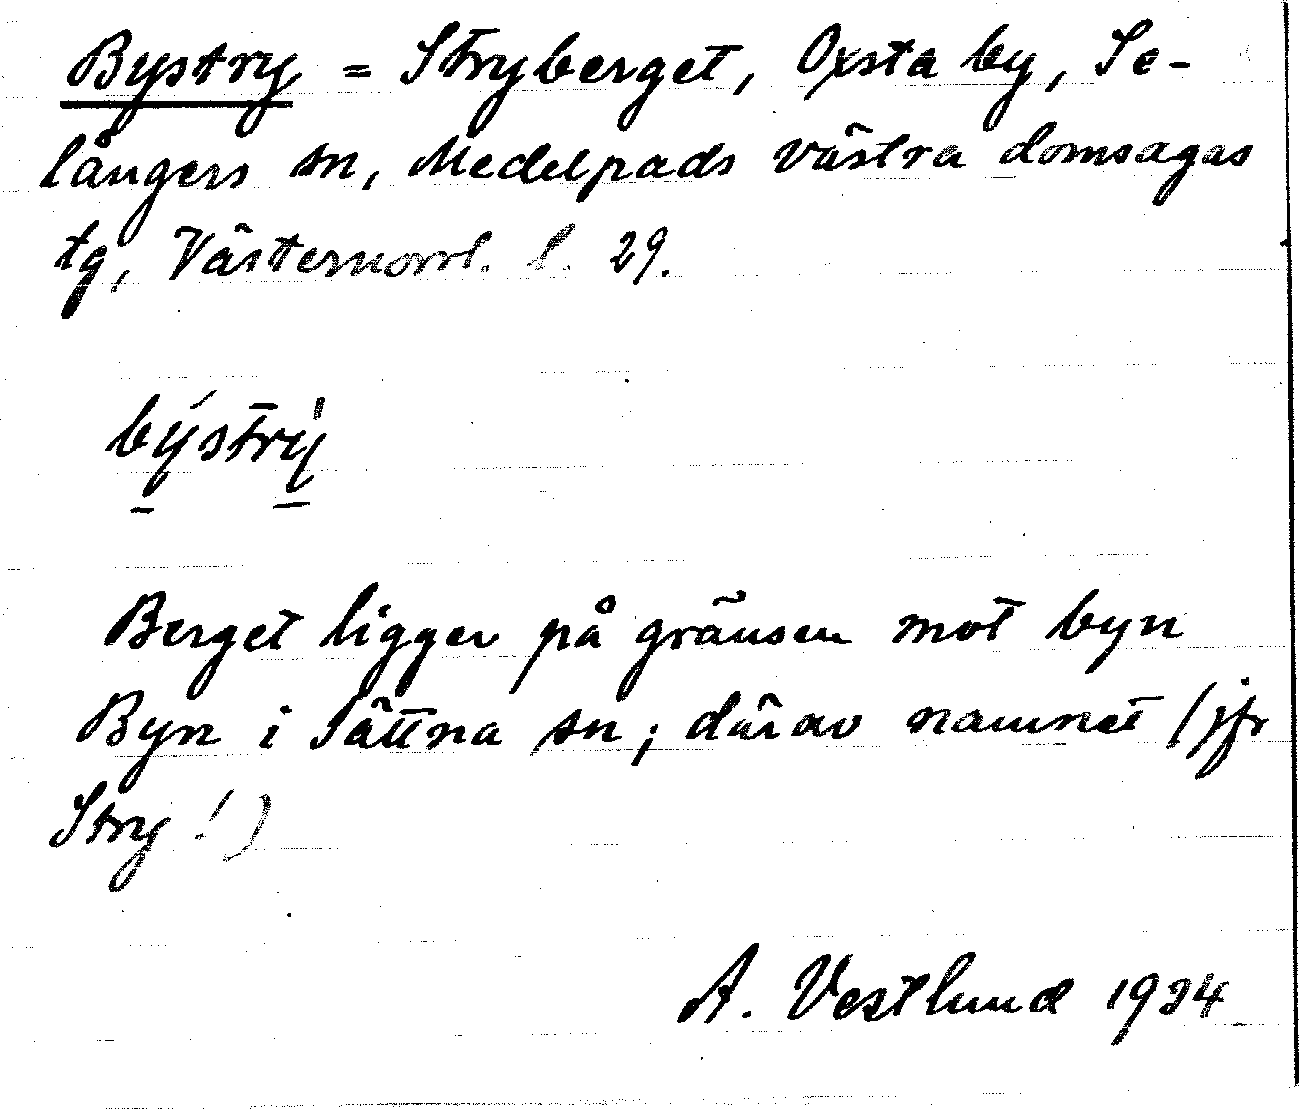 Bystry = Stryberget, Oxsta by, Se-
långers sn, Medelpads västra domsagas
tg, Västernorrl. l. 29.
býstrỳ
Berget ligger på gränsen mot byn
Byn i Sättna sn; därav namnet (jfr
Stry!)
A. Vestlund 1924